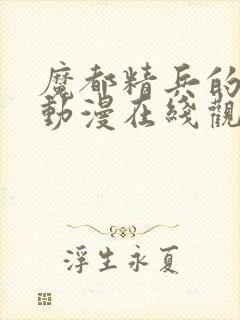 魔都精兵的
動漫在綫觀
浮生永夏